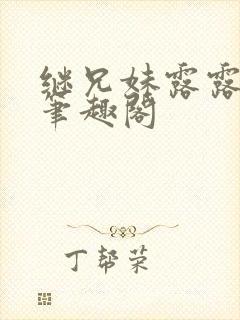 继兄妹露露
笔趣阁
丁帮荣